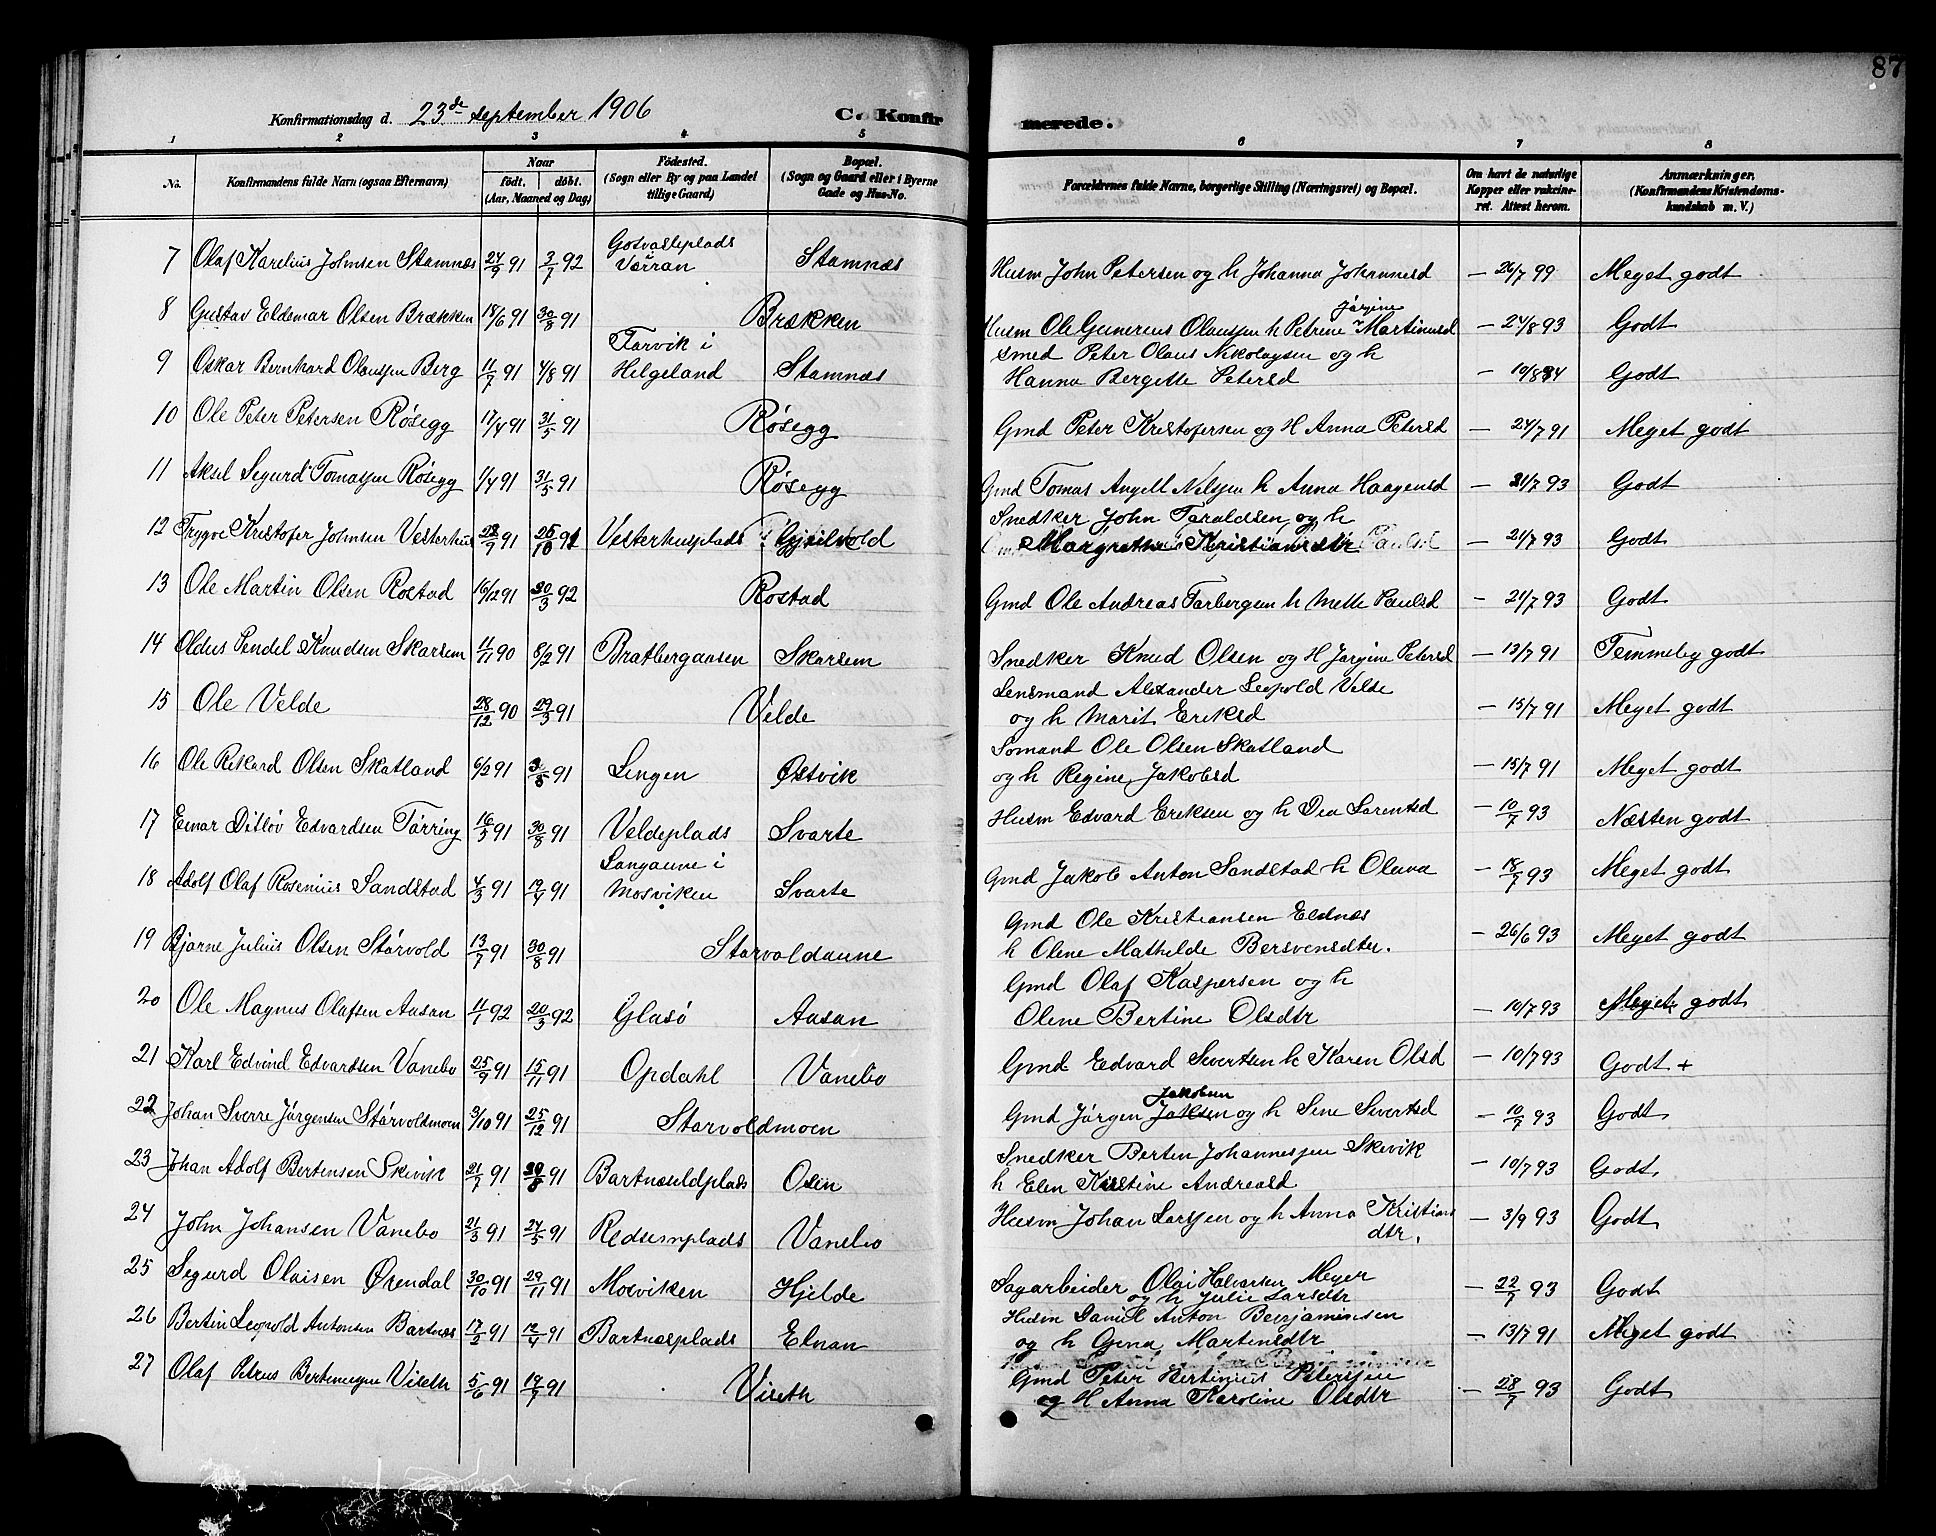 87
Konfirmationsdag d. 23de september 1906 C. Konfirmerede.
1 2 3 4 5 6 7 8
No. Konfirmandens fulde Navn (ogsaa Efternavn) Naar født. døbt. (Aar, Maaned og Dag) Fødested. (Sogn eller By og paa Landet tillige Gaard) Bopæl. (Sogn og Gaard eller i Byerne Gade og Hus-No. Forældrenes fulde Navne, borgerlige Stilling (Næringsvei) og Bopæl. Om havt de naturlige Kopper eller vaccineret. Attest herom. Anmærkninger, (Konfirmandens Kristendomskundskab m. V.)
7 Olaf Karelius Johnsen Stamnes 24/9 91 3/7 92 Gotvasliplads Værran Stamnæs Husm John Petersen og h Johanna Johannesd - 26/7 99 Meget godt
8 Gustav Eldemar Olsen Brækken 18/6 91 30/8 91 Brækken Husm Ole Gunerius Olaussen h Petrine Jørgine Martinusd - 24/8 93 Godt
9 Oskar Bernhard Olaussen Berg 11/7 91 4/8 91 Tarvik i Helgeland Stamnæs Smed Peter Olaus Nikolaysen og h
Hanna Bergette Petersd - Godt
10 Ole Peter Petersen Røsegg 17/4 91 31/5 91 Røsegg Gmd Peter Kristofersen og H Anna Petersd - 24/7 91 Meget godt
11 Aksel Sigurd Tomassen Røsegg 1/4 91 31/5 91 Røsegg Gmd Tomas Angell Nelsen h Anna Haagensd - 21/7 93 Godt
12 Trygve Kristofer Johnsen Vesterhus 28/7 91 25/10 91 Vesterhusplads Snedker John Taraldsen og h
Margrethe Kristiansdtr - 21/7 93 Godt
13 Ole Martin Olsen Rostad 16/12 91 20/3 92 Rostad Gmd Ole Andreas Tarbergsen h Mette Paulsd - 21/7 93 Godt
14 Oldus Pendel Knudsen Skarsem 11/11 90 8/2 91 Bratbergaasen Skarsem Snedker Knud Olsen og H Jørgine Petersd - 13/7 91 Temmelig godt
15 Ole Velde 28/12 90 29/3 91 Velde Lensmand Alexander Leopold Velde
og h Marit Eriksd - 15/7 91 Meget godt
16 Ole Rikard Olsen Skatland 6/2 91 91 Lingen Østvik Sømand Ole Olsen Skatland
og h Regine Jakobsd - 15/7 91 Meget godt
17 Einar Ditløv Edvardsen Tørring 16/5 91 30/8 91 Veldeplads Svarte Husm Edvard Eriksen og h Dea Sarentsd - 10/7 93 Næsten godt
18 Adolf Olaf Rosenius Sandstad 4/3 91 19/4 91 Langaune i Mosviken Svarte Gmd Jakob Anton Sandstad h Olava - 18/7 93 Meget godt
19 Bjarne Julius Olsen Størvold 13/7 91 30/8 91 Størvoldaune Gmd Ole Kristiansen Eldnæs
h Oline Mathilde Bersvensdtr. - 26/6 93 Meget godt
20 Ole Magnus Olafsen Aasan 11/1 92 20/3 92 Glusø Aasan Gmd Olaf Kaspersen og h
Olene Bertine Olsdtr - 10/7 93 Meget godt
21 Karl Edvind Edvardsen Vanebo 25/9 91 15/11 91 Opdahl Vanebo Gmd Edvard Sivertsen h Karen Olsd - 10/7 93 Godt +
22 Johan Sverre Jørgensen Størvoldmoen 3/10 91 25/12 91 Størvoldmoen Gmd Jørgen Jakobsen og h Sine Sivertsd - 10/7 93 Godt
23 Johan Adolf Bertensen Skevik 21/7 91 30/8 91 Bartnæseldplads Osen Snedker Berten Johannesen Skevik
h Elen Kirstine Andreasd - 10/7 93 Godt
24 John Johansen Vanebo 21/3 91 24/5 91 Redsemplads Vanebo Husm Johan Larssen og h Anna Kristiansdtr. - 3/9 93 Godt
25 Segurd Olaisen Ørendal 30/10 91 29/11 91 Mosviken Hjelde Sagarbeider Olai Halvarsen Meyer
og h Julie Larsdtr - 22/7 93 Godt
26 Bertin Leopold Antonsen Bartnæs 17/2 91 12/4 91 Bartnæsplads Elnan Husm Daniel Anton Benjaminsen
og h Gina Martinsdtr - 13/7 91 Meget godt
27 Olaf Petrus Viseth 5/6 91 19/7 91 Viseth Gmd Peter Bertinius Peterssen
og H Anna Karoline Olsdtr - 28/7 93 Godt